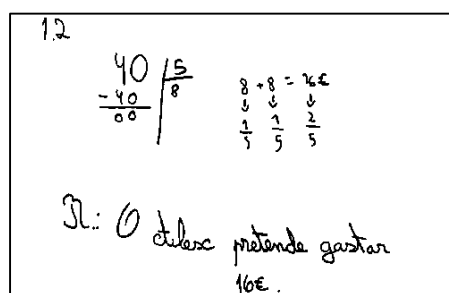 1.2
40 | 5
- 40 8
00
8 + 8 = 16€
↓ ↓ ↓
1/5 1/5 2/5
R.: O pretende gastar
16€.